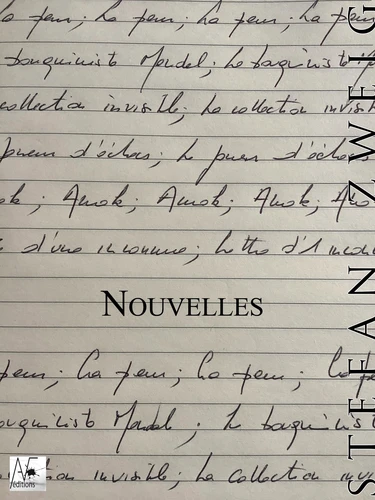 la peur; La peur; La peur; La peur
bouquiniste Mendel; Le bouquiniste
collection invisible; La collection invisi
joueur d'échecs; Le joueur d'échecs
ok; Amok; Amok; Amok; Amo
d'une inconnue; Lettre d'1 incon
NOUVELLES
peur; La peur; La peur; La pe
ouquiniste Mendel; Le bouquinist
invisible; La collection
AVE
éditions
STEFAN ZWEIG